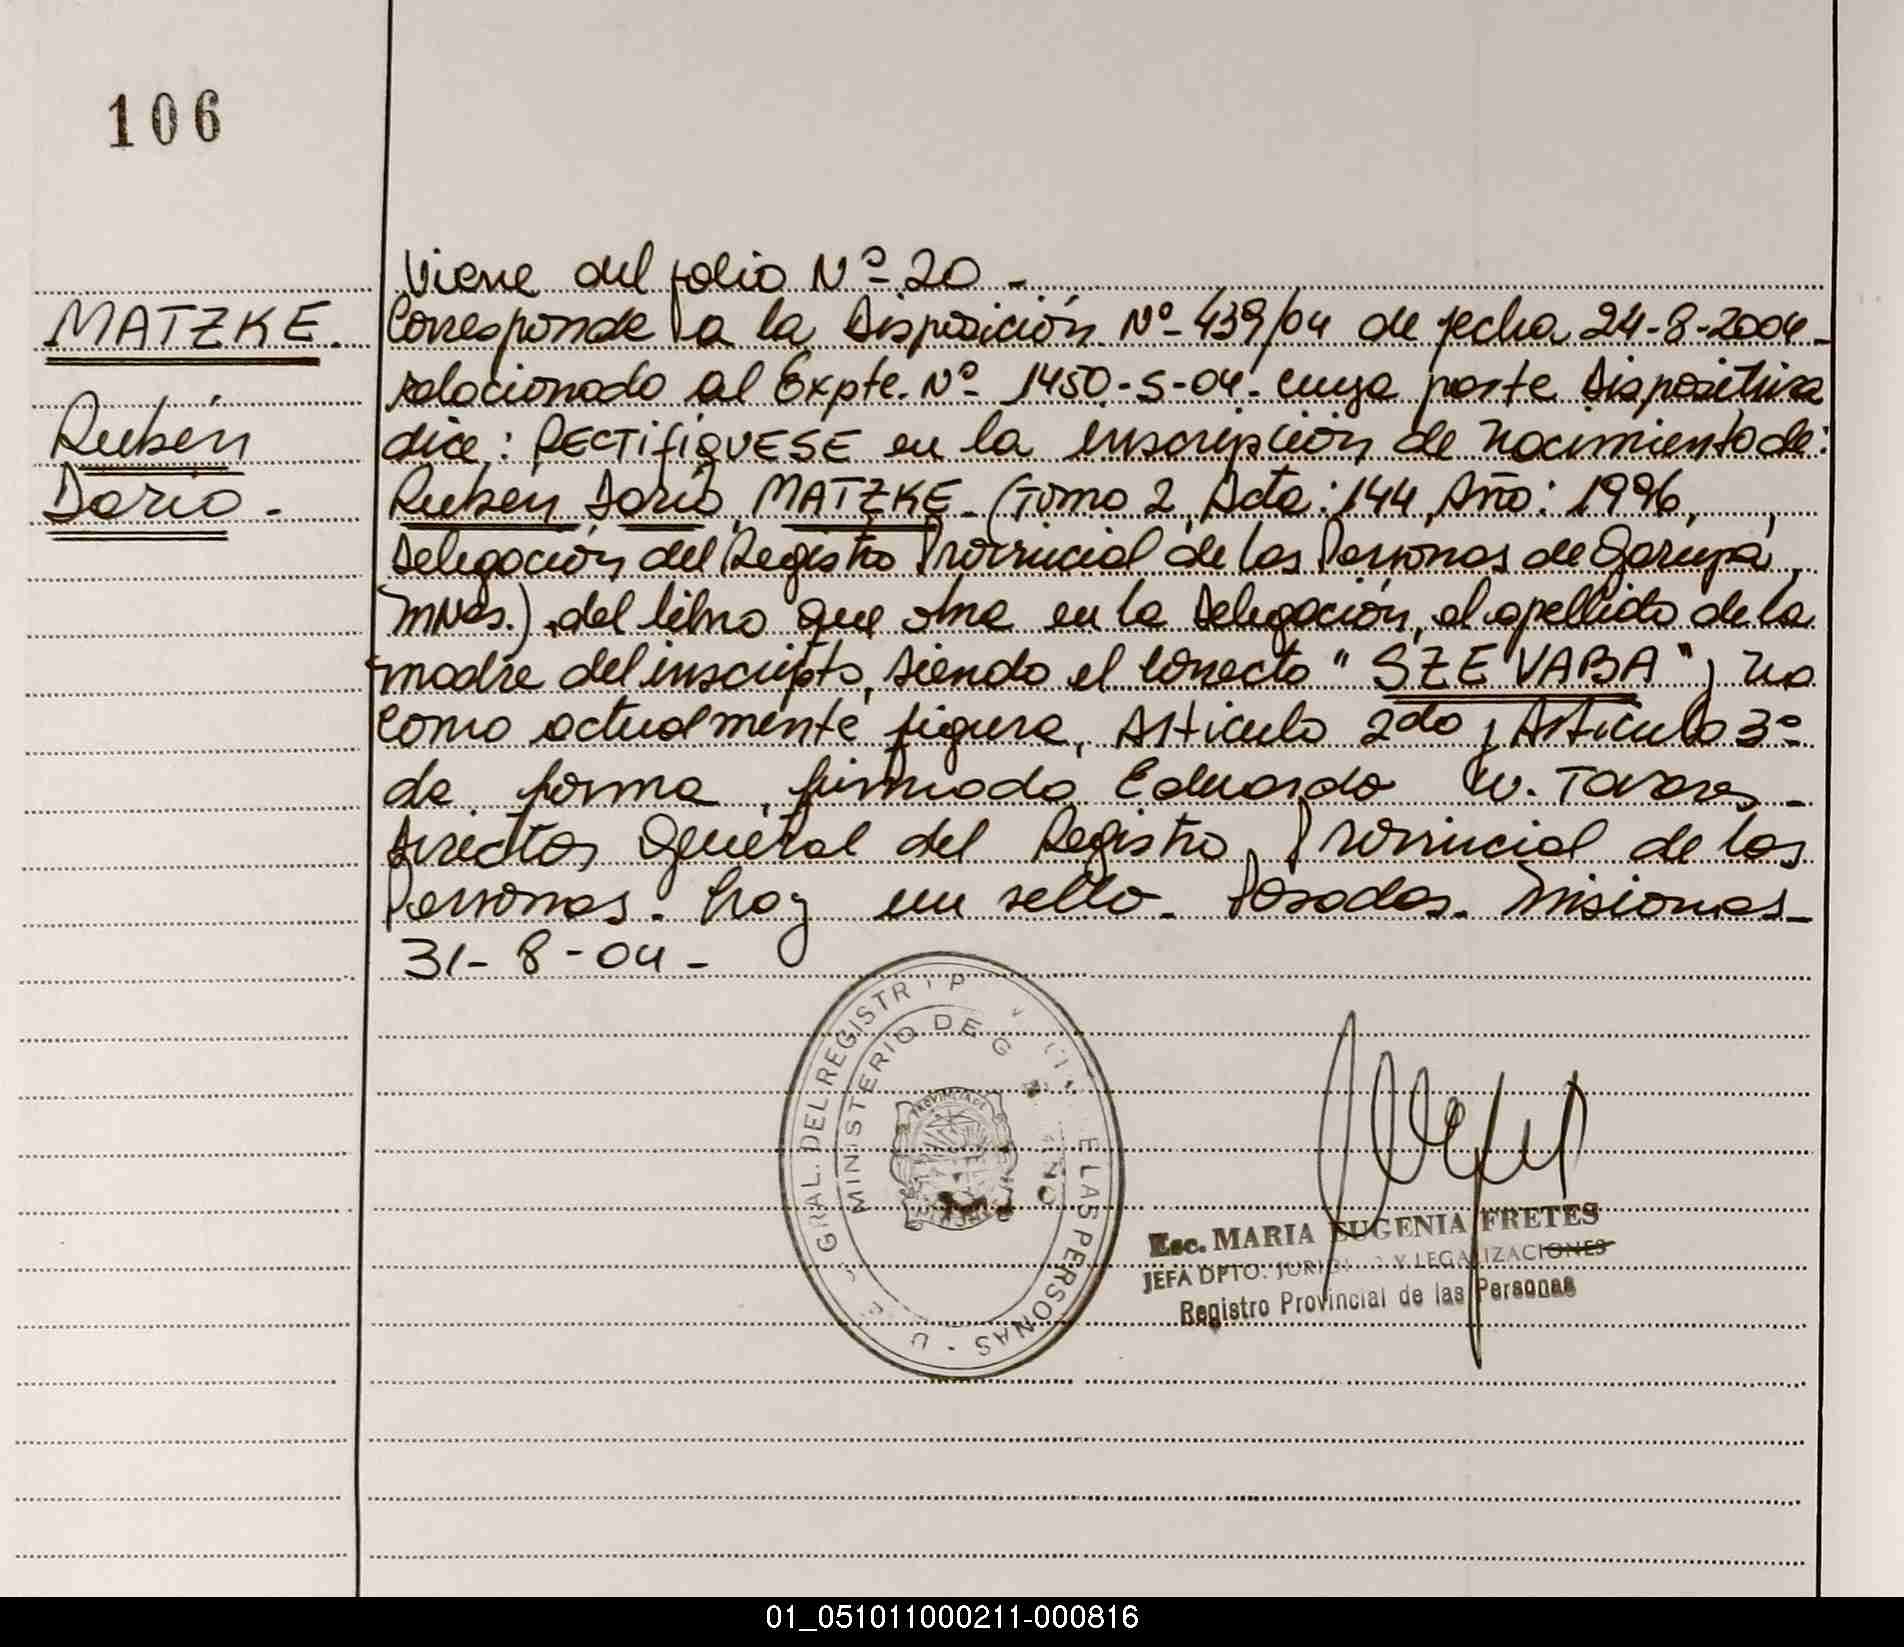 106
Viene del folio Nº 20 -
MATZKE.
Corresponde a la Disposición Nº 439/04 de fecha 24-8-2004-
relacionado al Expte. Nº 1450-S-04- cuya parte Dispositiva
Rubén
dice: RECTIFIQUESE en la inscripción de nacimiento de:
Darío.-
Rubén Darío MATZKE - (Tomo 2, Acta: 144, Año: 1996,
Delegación del Registro Provincial de las Personas de Garupá,
Mnes.), del libro que obra en la Delegación, el apellido de la
madre del inscripto, siendo el correcto "SZEVABA" y no
como actualmente figura, Artículo 2do y Artículo 3º
de forma, firmado Eduardo W. Tavares -
Director General del Registro Provincial de las
Personas. hay un sello. Posadas. Misiones -
31-8-04-
GRAL. DEL REGISTR P E LAS PERSONAS -
MINISTERIO DE G NO
PROVINCIA DE
Esc. MARIA EUGENIA FRETES
JEFA DPTO. JURIDICO Y LEGALIZACIONES
Registro Provincial de las Personas
01_051011000211-000816